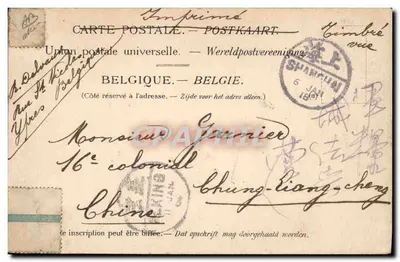 Imprimé
CARTE POSTALE. — POSTKAART.
Timbré
vue
Union postale universelle. — Wereldpostvereeniging.
BELGIQUE. — BELGIE.
(Côté réservé à l'adresse. — Zijde voor het adres alleen.)
上海
SHANGHAI
JAN
Rue St
Ypres Belgique
Monsieur Garnier
16e colonial
Chung-liang-cheng
Chine
PEKING
JAN
te inscription peut être biffée. — Dat opschrift mag doorgehaald worden.